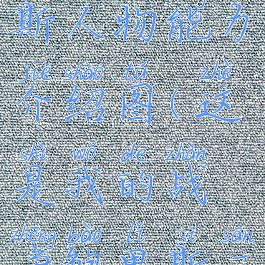 斯人物能力
jiè shào tú zhè
介绍图(这
shì wǒ de zhàn
是我的战
zhēng bào lǐ sī sān